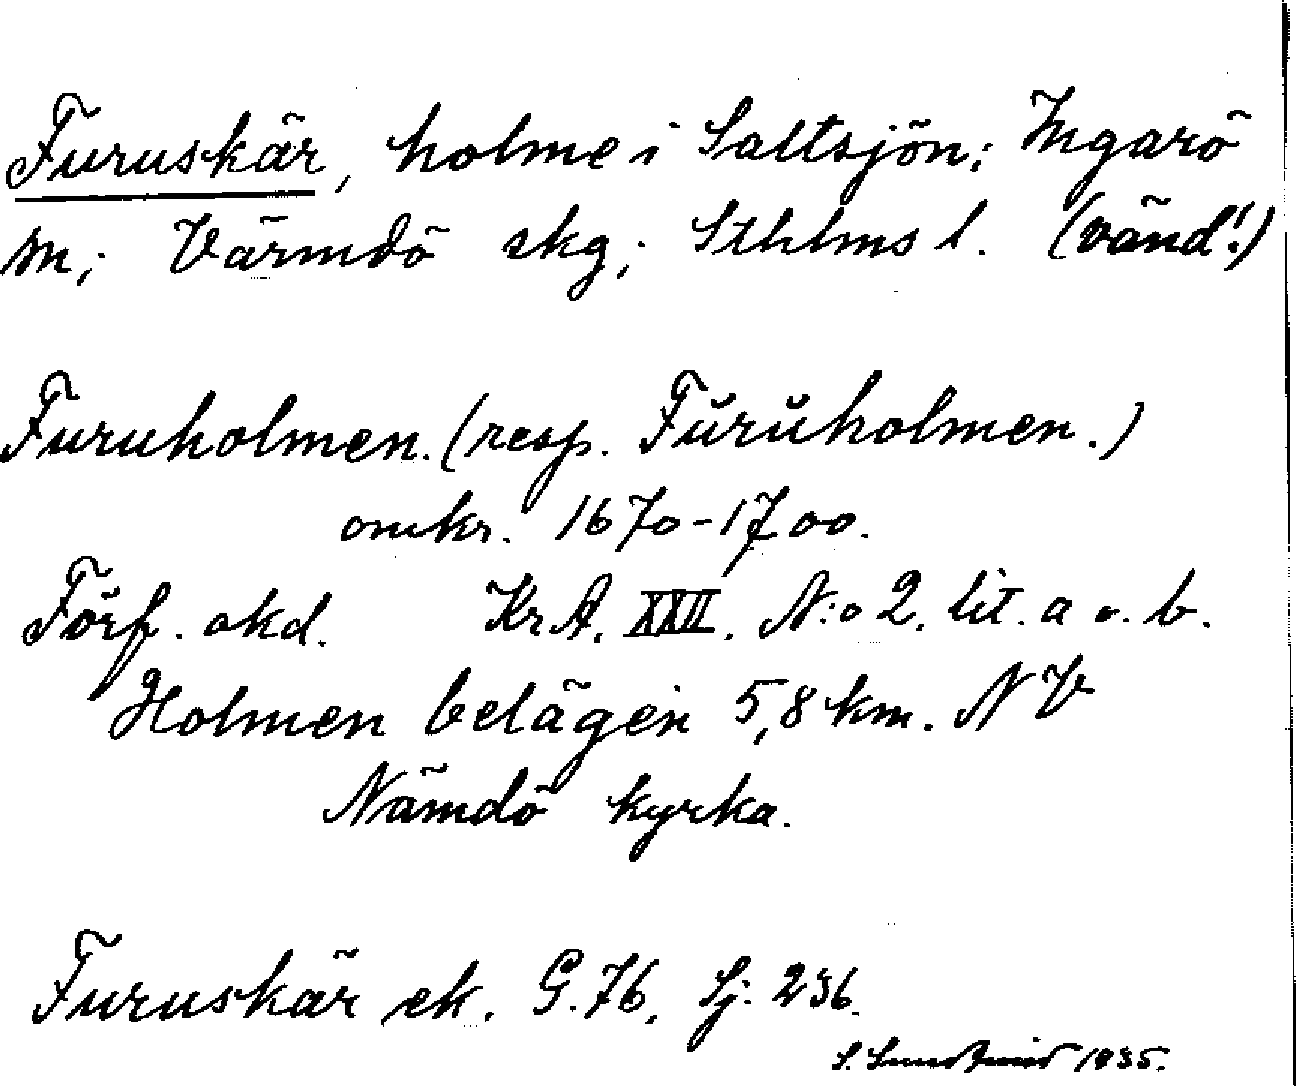 Furuskär, holme i Saltsjön; Ingarö
sn; Värmdö skg; Sthlms l. (vänd!)
Furuholmen. (resp. Fŭrŭholmen.)
omkr. 1670-1700.
Förf. okd. KrA. XXII. N:o 2. lit. a o. b.
Holmen belägen 5,8 km. NV
Nämdö kyrka.
Furuskär ek. G. 76, Sj: 236.
S. 1935.